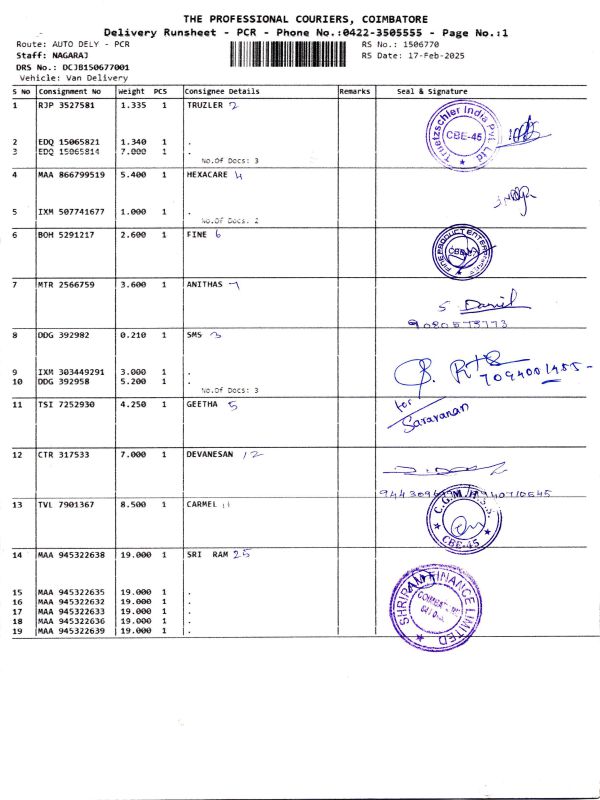 THE PROFESSIONAL COURIERS, COIMBATORE
Delivery Runsheet - PCR - Phone No.:0422-3505555 - Page No.:1
Route: AUTO DELY - PCR RS No.: 1506770
Staff: NAGARAJ RS Date: 17-Feb-2025
DRS No.: DCJB150677001
Vehicle: Van Delivery
S No Consignment No Weight PCS Consignee Details Remarks Seal & Signature
1 RJP 3527581 1.335 1 TRUZLER 2
Truetzschler India Pvt. Ltd
CBE-45
2 EDQ 15065821 1.340 1 .
3 EDQ 15065814 7.000 1 .
No.Of Docs: 3
4 MAA 866799519 5.400 1 HEXACARE 4
5 IXM 507741677 1.000 1 .
No.Of Docs: 2
6 BOH 5291217 2.600 1 FINE 6
FINE PRODUCT
7 MTR 2566759 3.600 1 ANITHAS 7
S Daniel
9080573773
8 DDG 392982 0.210 1 SMS 3
9 IXM 303449291 3.000 1 .
10 DDG 392958 5.200 1 .
7094001455-
No.Of Docs: 3
11 TSI 7252930 4.250 1 GEETHA 5
for
Saravanan
12 CTR 317533 7.000 1 DEVANESAN 12
13 TVL 7901367 8.500 1 CARMEL 11
C.G.M.H.S.S.
CBE-45
14 MAA 945322638 19.000 1 SRI RAM 25
15 MAA 945322635 19.000 1 .
16 MAA 945322632 19.000 1 .
17 MAA 945322633 19.000 1 .
18 MAA 945322636 19.000 1 .
19 MAA 945322639 19.000 1 .
SHRIRAM FINANCE LIMITED